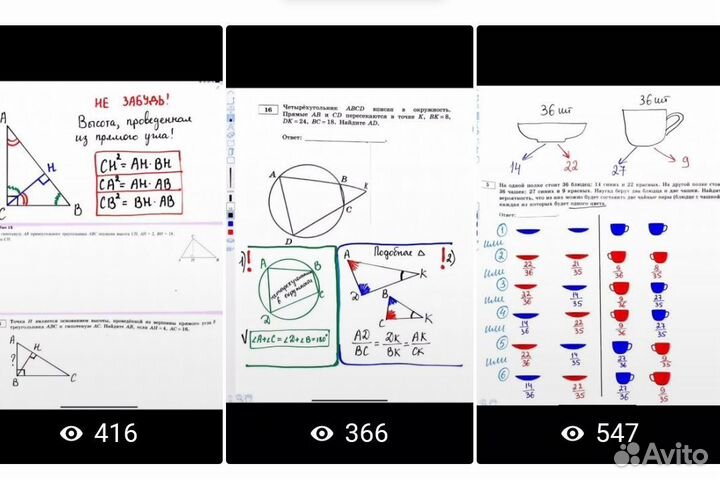 НЕ ЗАБУДЬ!
Высота, проведенная
из прямого угла!
A
H
C
B
CH² = AH·BH
CA² = AH·AB
CB² = BH·AB
гипотенузу AB прямоугольного треугольника ABC опущена высота CH, AH = 2, BH = 18.
Точка H является основанием высоты, проведённой из вершины прямого угла B
треугольника ABC к гипотенузе AC. Найдите AB, если AH = 4, AC = 16.
A
?
H
B
C
416
16
Четырёхугольник ABCD вписан в окружность.
Прямые AB и CD пересекаются в точке K, BK = 8,
DK = 24, BC = 18. Найдите AD.
Ответ:
A
B
C
D
1)!
A
B
C
четырехугольник
в окружности
∠A+∠C = ∠D+∠B = 180°
!2)
Подобные Δ
A
K
B
C
K
AD/BC = DK/BK = AK/CK
366
36 шт
36 шт
14
22
27
9
5
На одной полке стоит 36 блюдец: 14 синих и 22 красных. На другой полке стоят
36 чашек: 27 синих и 9 красных. Наугад берут два блюдца и две чашки. Найдите
вероятность, что из них можно будет составить две чайные пары (блюдце с чашкой)
каждая из которых будет одного цвета.
Ответ:
1
или
2
22/36 21/35 9/36 8/35
или
3
22/36 14/35 9/36 27/35
или
4
14/36 22/35 9/36 27/35
или
5
22/36 14/35 27/36 9/35
или
6
14/36 22/35 27/36 9/35
547
Avito